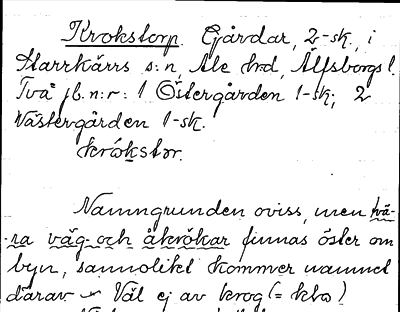 Krokstorp. Gårdar, 2-sk, i
Starrkärrs s:n, Ale hrd, Älfsborgs l.
Två jb.n:r: 1 Östergården 1-sk; 2
Västergården 1-sk.
krókstor.
Namngrunden oviss, men två-
ra väg- och åkrökar finnas öster om
byn, sannolikt kommer namnet
därav – Väl ej av krog (= klo)